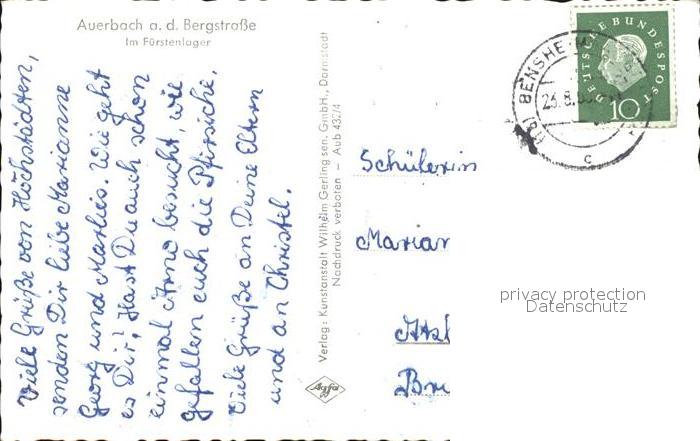 Auerbach a. d. Bergstraße
Im Fürstenlager
Viele Grüße von Hochstädten,
senden Dir liebe Marianne
Georg und Marlies. Wie geht
es Dir? Hast Du auch schon
einmal Arno besucht, wie
gefallen euch die Pfirsiche,
Viele Grüße an Deine Eltern
und an Christel.
Verlag: Kunstanstalt Wilhelm Gerling sen. GmbH., Darmstadt
Nachdruck verboten – Aub 432/4
Agfa
Schülerin
Marian
Bre
DEUTSCHE BUNDESPOST
10
BENSHEIM
23.8.
c
privacy protection
Datenschutz